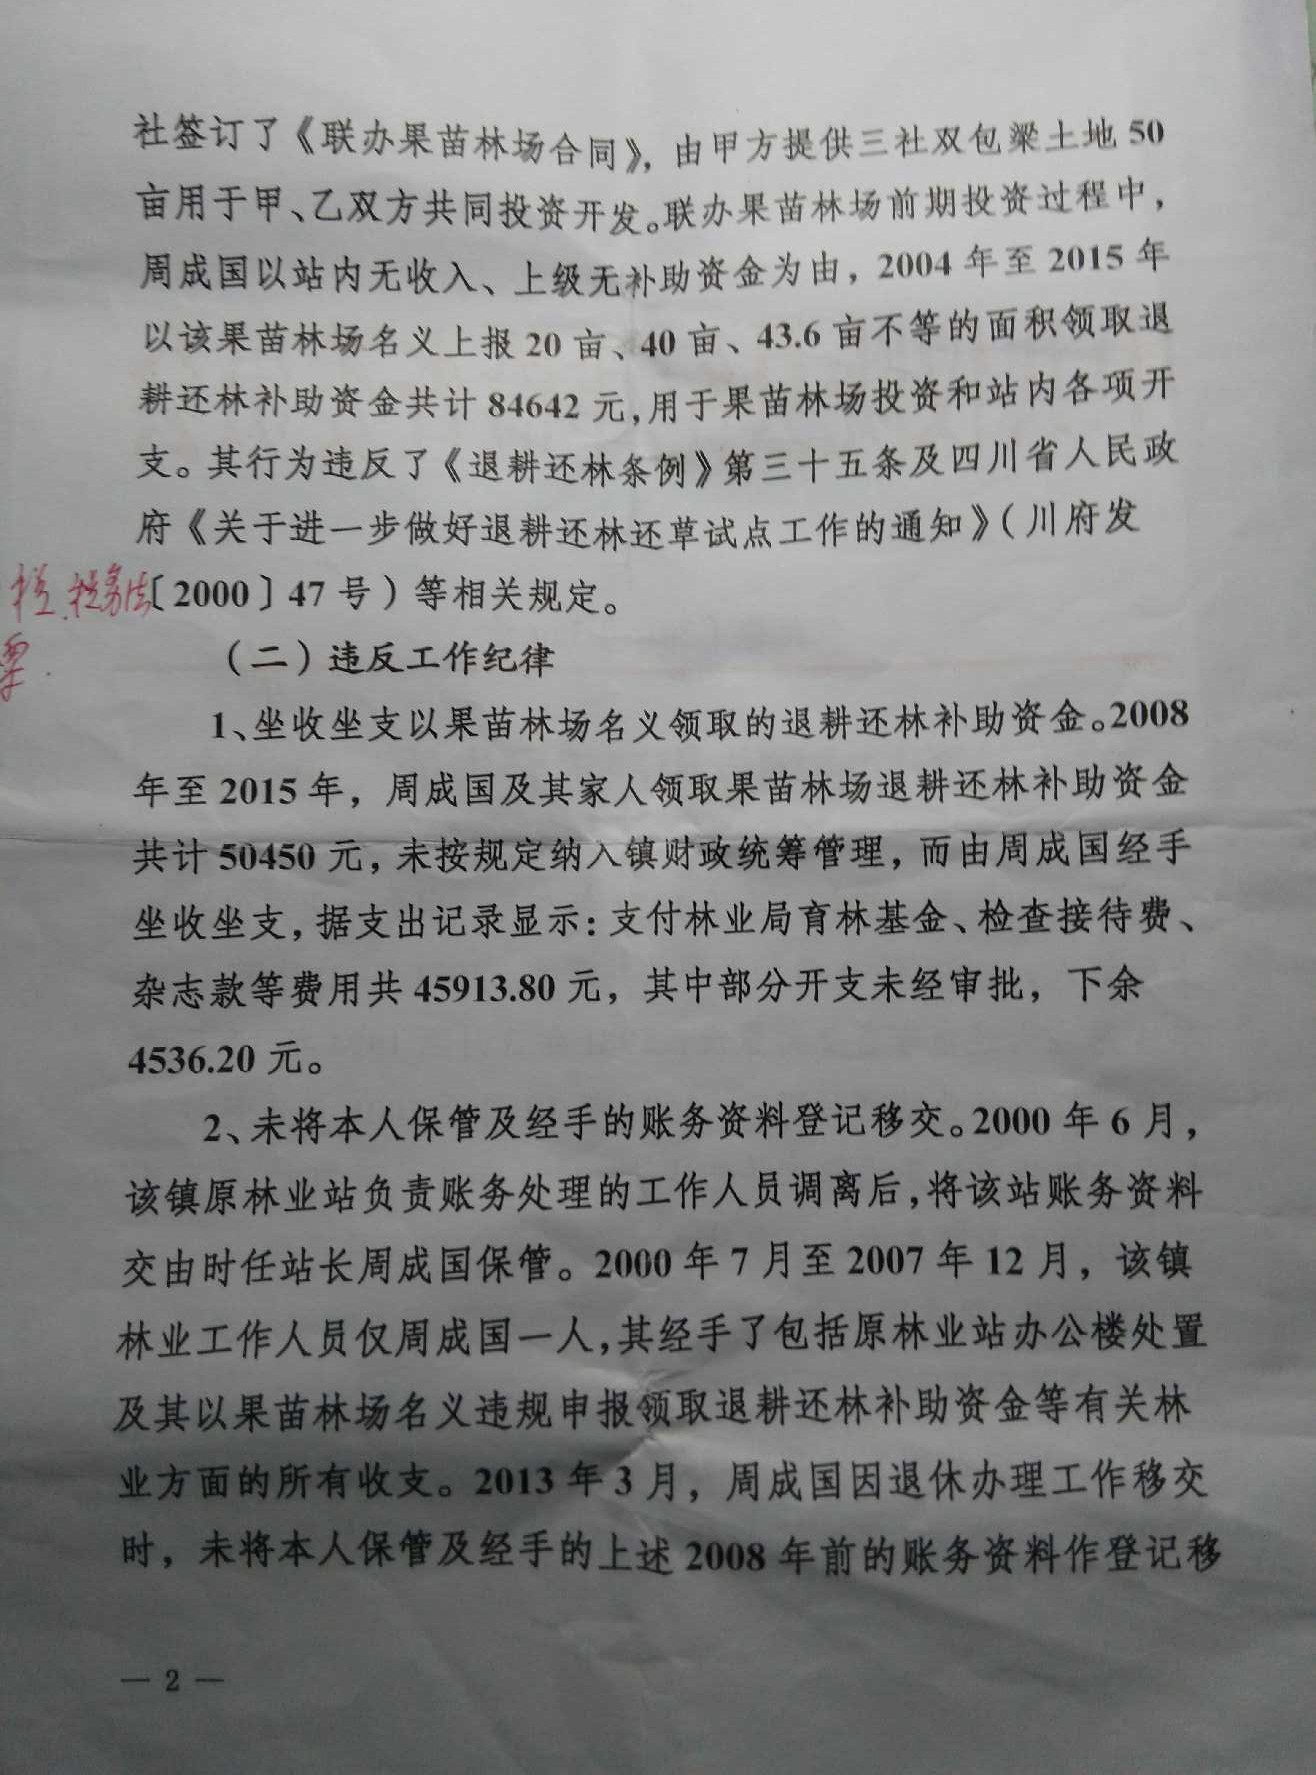 社签订了《联办果苗林场合同》，由甲方提供三社双包梁土地 50
亩用于甲、乙双方共同投资开发。联办果苗林场前期投资过程中，
周成国以站内无收入、上级无补助资金为由，2004 年至 2015 年
以该果苗林场名义上报 20 亩、40 亩、43.6 亩不等的面积领取退
耕还林补助资金共计 84642 元，用于果苗林场投资和站内各项开
支。其行为违反了《退耕还林条例》第三十五条及四川省人民政
府《关于进一步做好退耕还林还草试点工作的通知》（川府发
〔2000〕47 号）等相关规定。
（二）违反工作纪律
1、坐收坐支以果苗林场名义领取的退耕还林补助资金。2008
年至 2015 年，周成国及其家人领取果苗林场退耕还林补助资金
共计 50450 元，未按规定纳入镇财政统筹管理，而由周成国经手
坐收坐支，据支出记录显示：支付林业局育林基金、检查接待费、
杂志款等费用共 45913.80 元，其中部分开支未经审批，下余
4536.20 元。
2、未将本人保管及经手的账务资料登记移交。2000 年 6 月，
该镇原林业站负责账务处理的工作人员调离后，将该站账务资料
交由时任站长周成国保管。2000 年 7 月至 2007 年 12 月，该镇
林业工作人员仅周成国一人，其经手了包括原林业站办公楼处置
及其以果苗林场名义违规申报领取退耕还林补助资金等有关林
业方面的所有收支。2013 年 3 月，周成国因退休办理工作移交
时，未将本人保管及经手的上述 2008 年前的账务资料作登记移
— 2 —